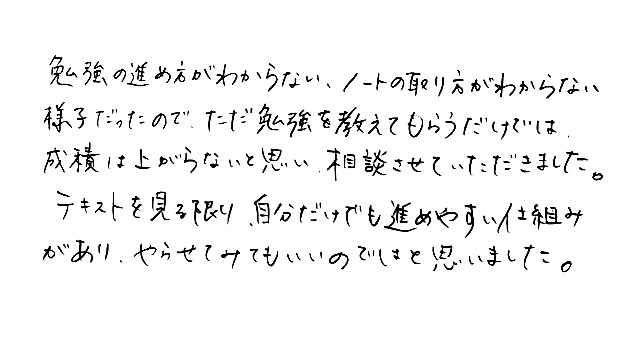 勉強の進め方がわからない、ノートの取り方がわからない
様子だったので、ただ勉強を教えてもらうだけでは、
成積は上がらないと思い、相談させていただきました。
テキストを見る限り、自分だけでも進めやすい仕組み
があり、やらせてみてもいいのではと思いました。